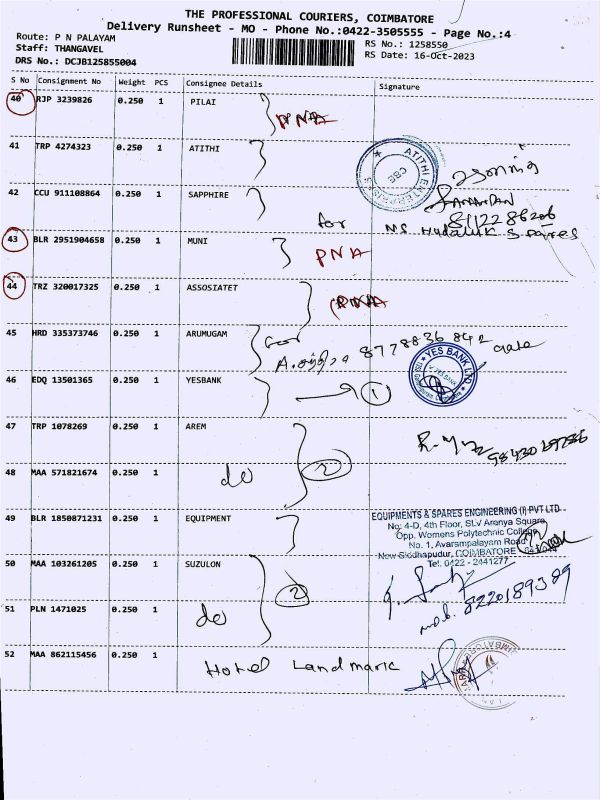 THE PROFESSIONAL COURIERS, COIMBATORE
Delivery Runsheet - MO - Phone No.:0422-3505555 - Page No.:4
Route: P N PALAYAM
RS No.: 1258550
Staff: THANGAVEL
RS Date: 16-Oct-2023
DRS No.: DCJB125855004
S No Consignment No Weight PCS Consignee Details Signature
40 RJP 3239826 0.250 1 PILAI
PNA
41 TRP 4274323 0.250 1 ATITHI
ATITHI ENTERPRISES
CBE
42 CCU 911108864 0.250 1 SAPPHIRE
for
43 BLR 2951904658 0.250 1 MUNI
PNA
44 TRZ 320017325 0.250 1 ASSOSIATET
PNA
45 HRD 335373746 0.250 1 ARUMUGAM
8778836842
46 EDQ 13501365 0.250 1 YESBANK
1
YES BANK LTD
47 TRP 1078269 0.250 1 AREM
2
48 MAA 571821674 0.250 1
do
49 BLR 1850871231 0.250 1 EQUIPMENT
EQUIPMENTS & SPARES ENGINEERING (I) PVT LTD
No: 4-D, 4th Floor, SLV Aranya Square
Opp. Womens Polytechnic College
No. 1, Avarampalayam Road
New Siddhapudur, COIMBATORE
Tel: 0422 - 2441277
50 MAA 103261205 0.250 1 SUZULON
2
51 PLN 1471025 0.250 1
do
8220189389
52 MAA 862115456 0.250 1
Hotel Landmark